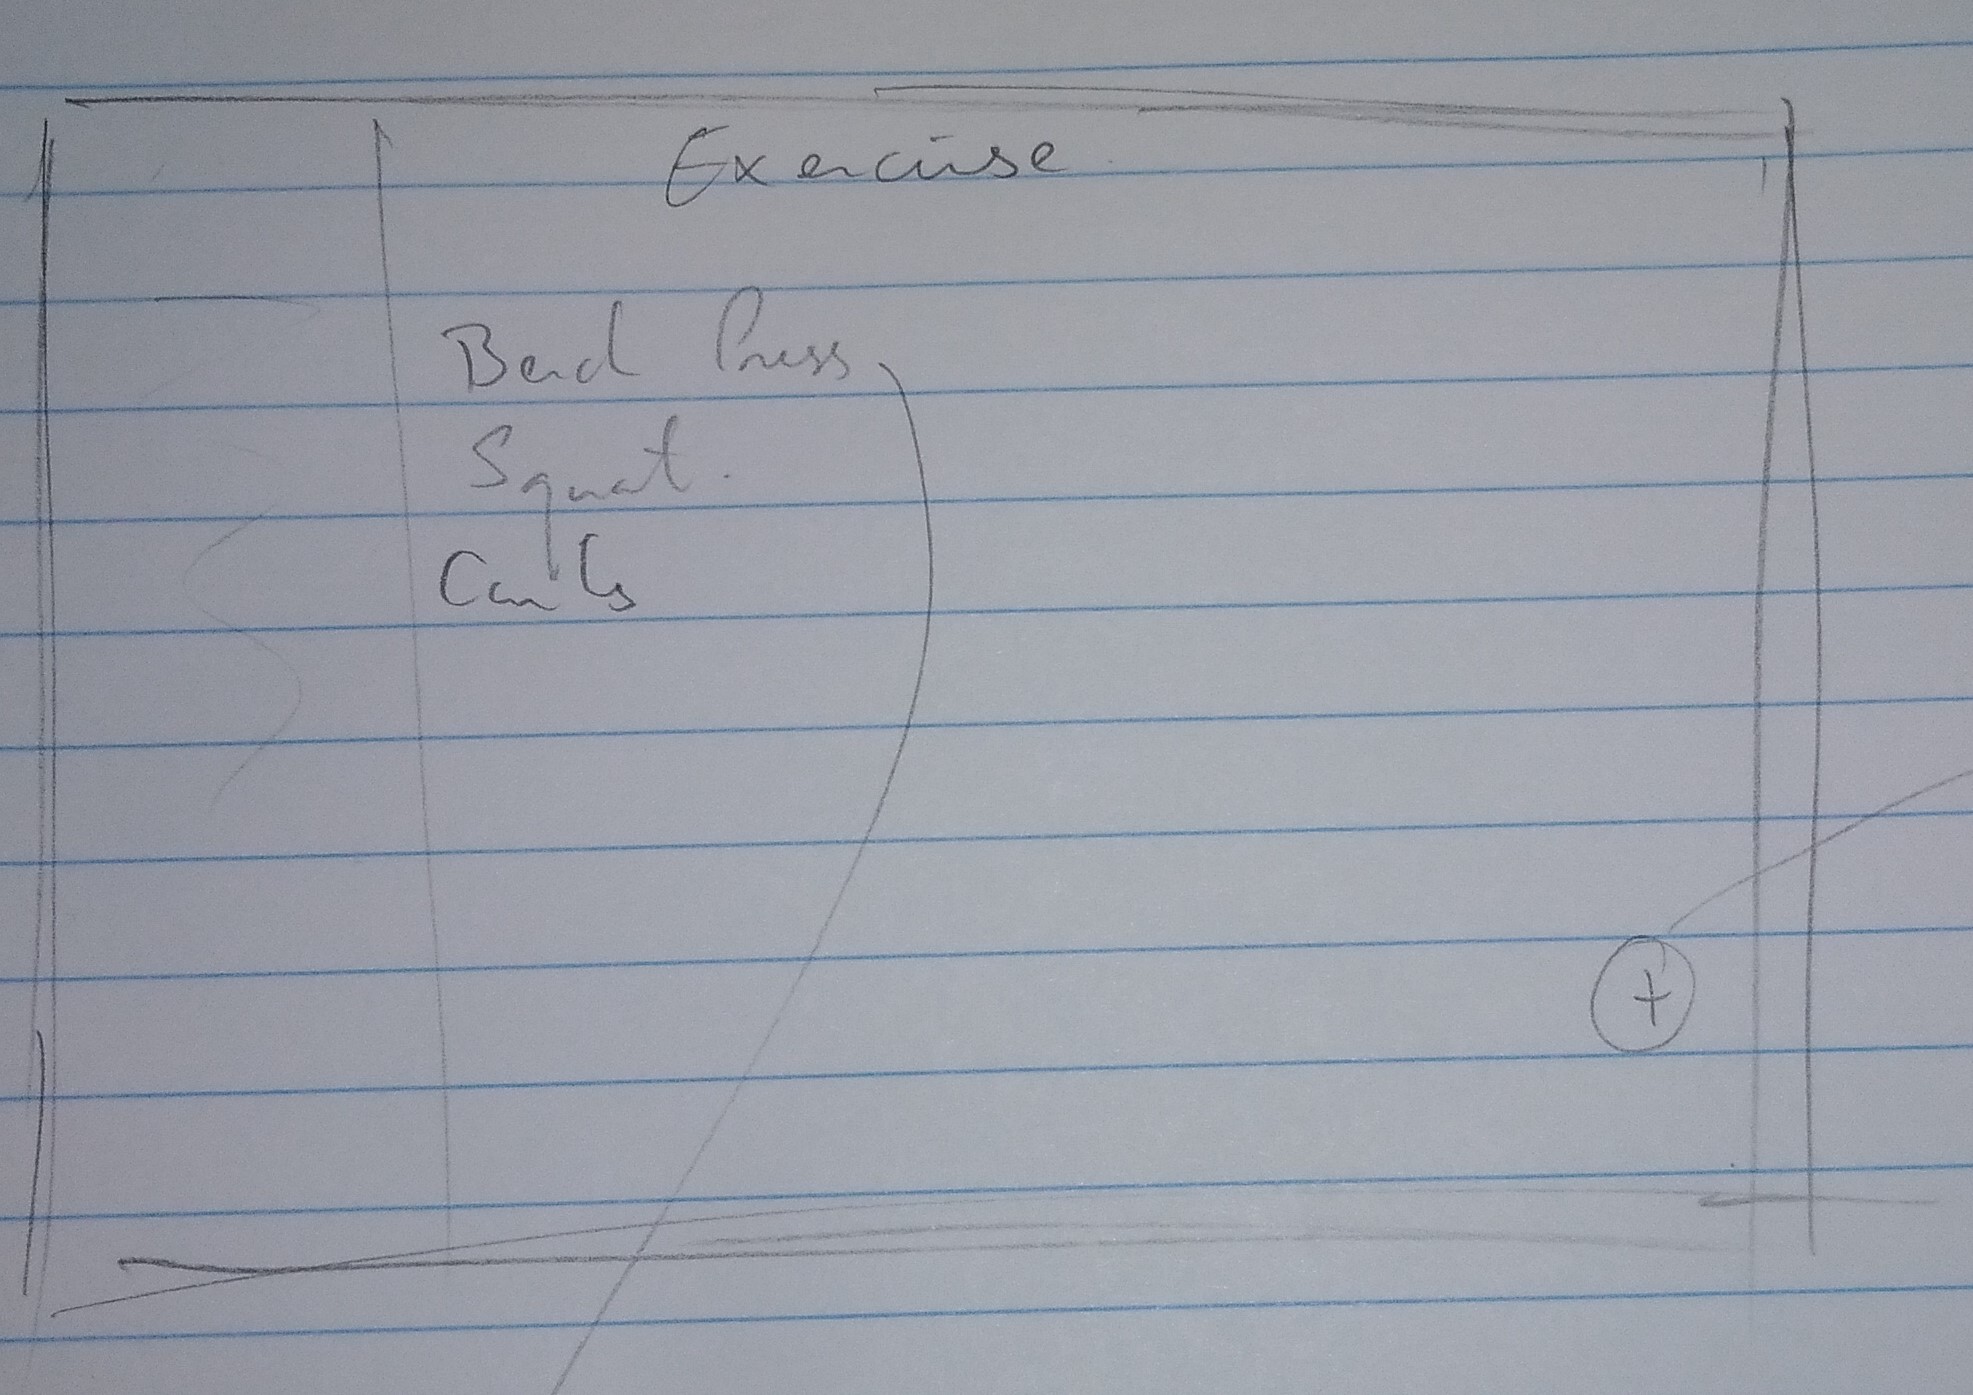 Exercise
Bench Press
Squat.
Curls
+